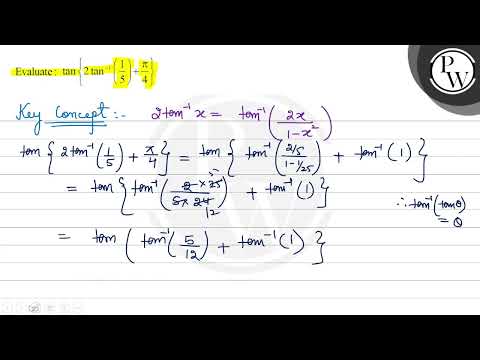 Evaluate: tan {2 tan⁻¹ (1/5) + π/4}
PW
Key Concept :- 2tan⁻¹ x = tan⁻¹ (2x / 1-x²)
tan {2tan⁻¹(1/5) + π/4} = tan {tan⁻¹ (2/5 / 1-1/25) + tan⁻¹ (1)}
= tan {tan⁻¹ (2 × 25 5 / 5 × 24 12) + tan⁻¹ (1)}
∴ tan⁻¹ (tan θ) = θ
= tan (tan⁻¹ (5/12) + tan⁻¹ (1)}